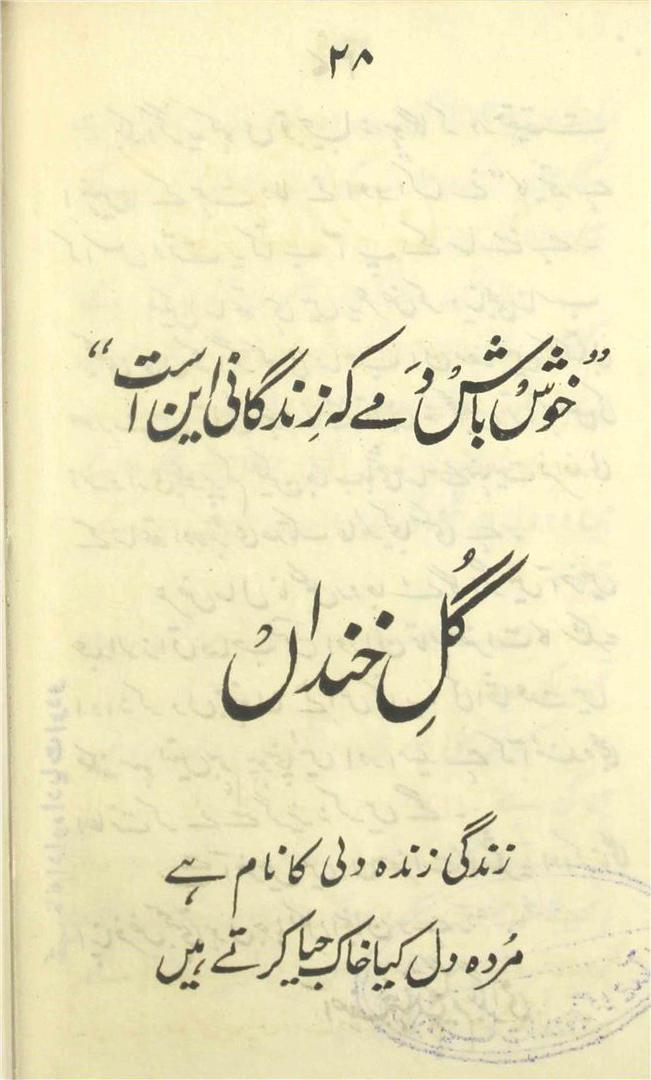 ۲۸
”خوش باش دَمے کہ زِندگانی این است“
گُلِ خنداں
زندگی زندہ دلی کا نام ہے
مُردہ دل کیا خاک جیا کرتے ہیں